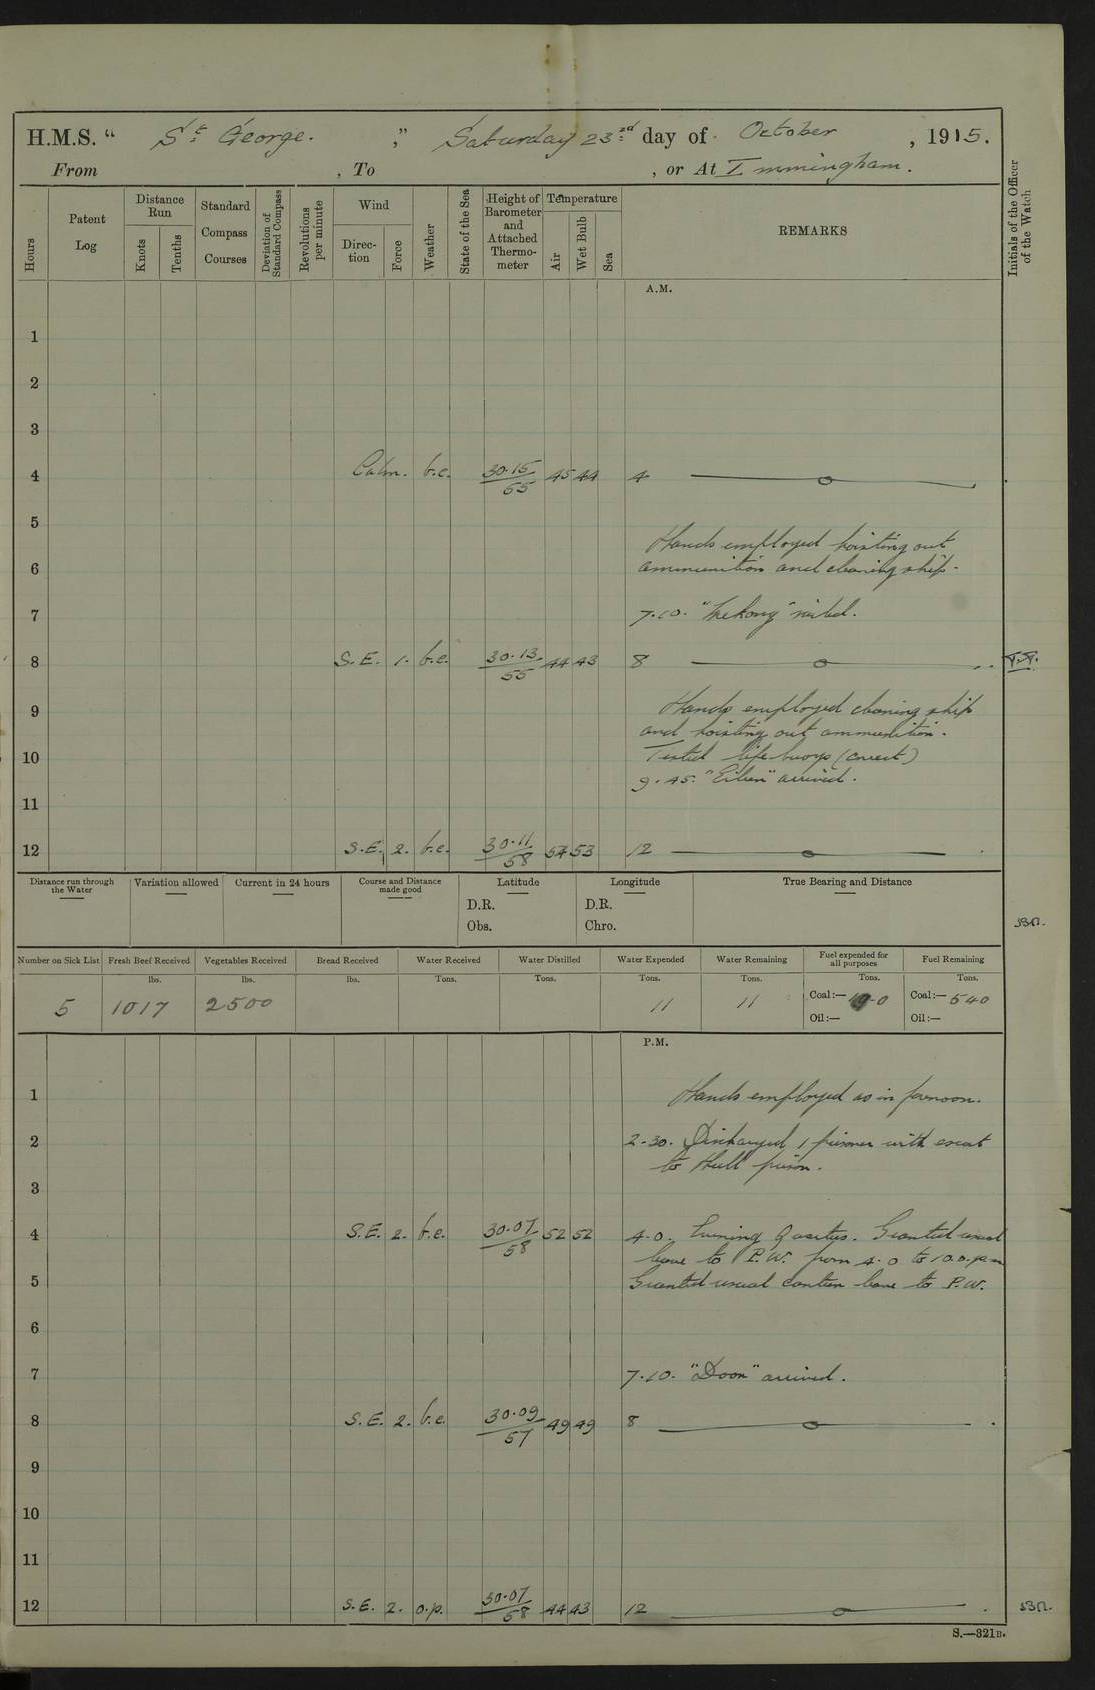 H.M.S. “ St George. ” Saturday 23rd day of October, 1915.
From , To , or At Immingham.
Hours
Patent Log
Distance Run
Knots
Tenths
Standard Compass Courses
Deviation of Standard Compass
Revolutions per minute
Wind
Direction
Force
Weather
State of the Sea
Height of Barometer and Attached Thermometer
Temperature
Air
Wet Bulb
Sea
REMARKS
Initials of the Officer of the Watch
A.M.
1
2
3
4 Calm. b.c. 30.15/55 45 44 4
5
Hands employed hoisting out
6 ammunition and cleaning ship.
7 7.10. sailed.
8 S.E. 1. b.c. 30.13/55 44 43 8
9 Hands employed cleaning ship
and hoisting out ammunition.
10 Tested life buoys (correct)
9.45. arrived.
11
12 S.E. 2. b.c. 30.11/58 54 53 12
Distance run through the Water
Variation allowed
Current in 24 hours
Course and Distance made good
Latitude
D.R.
Obs.
Longitude
D.R.
Chro.
True Bearing and Distance
Number on Sick List Fresh Beef Received Vegetables Received Bread Received Water Received Water Distilled Water Expended Water Remaining Fuel expended for all purposes Fuel Remaining
lbs. lbs. lbs. Tons. Tons. Tons. Tons. Tons. Tons.
5 1017 2500 11 11 Coal:— Coal:— 540
Oil:— Oil:—
P.M.
1 Hands employed as in forenoon.
2 2-30. Discharged 1 prisoner with escort
to Hull prison.
3
4 S.E. 2. b.c. 30.07/58 52 52 4.0. Evening Quarters. Granted usual
leave to P.W. from 4.0 to 10.0.pm
5 Granted usual canteen leave to P.W.
6
7 7.10. "Doon" arrived.
8 S.E. 2. b.c. 30.09/57 49 49 8
9
10
11
12 S.E. 2. o.p. 30.07/58 44 43 12
S.—321B.